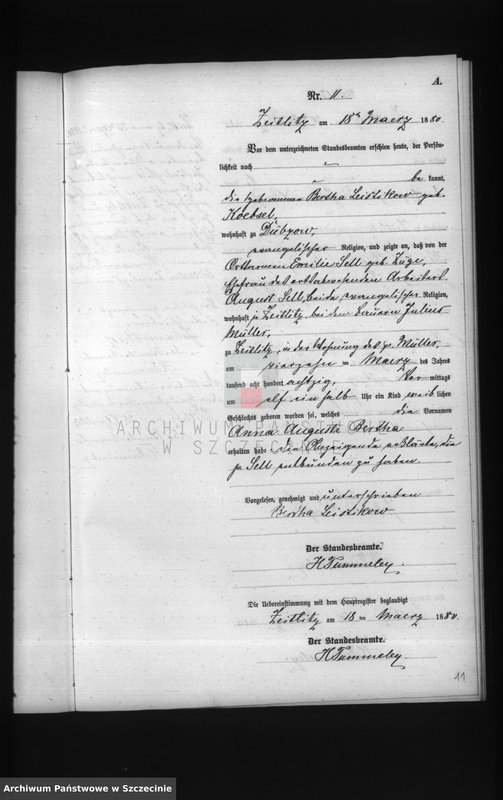 A.
Nr. 11.
Zeitlitz am 18ten Maerz 1880.
Vor dem unterzeichneten Standesbeamten erschien heute, der Persön-
lichkeit nach
be kannt,
die Hebeamme Bertha Leistikow geb.
Koebsel,
wohnhaft zu Dübzow,
evangelischer Religion, und zeigte an, daß von der
Ortsarmen Emilie Sell geb. Züge,
Ehefrau des ortsabwesenden Arbeiters
August Sell, beide, evangelischer Religion,
wohnhaft zu Zeitlitz bei dem Bauern Julius
Müller,
zu Zeitlitz, in der Wohnung des p. Müller,
am vierzehn ten Maerz des Jahres
tausend acht hundert achtzig, Vor mittags
um elf ein halb Uhr ein Kind weib lichen
Geschlechts geboren worden sei, welches die Vornamen
Anna Auguste Bertha
erhalten habe. die Anzeigende erklärte, die
p. Sell entbunden zu haben.
Vorgelesen, genehmigt und unterschrieben
Bertha Leistikow
Der Standesbeamte.
H Tummeley.
Die Uebereinstimmung mit dem Hauptregister beglaubigt
Zeitlitz am 18 ten Maerz 1880.
Der Standesbeamte.
H Tummeley.
11
ARCHIWUM PAŃSTWOWE
W SZCZECINIE
Archiwum Państwowe w Szczecinie